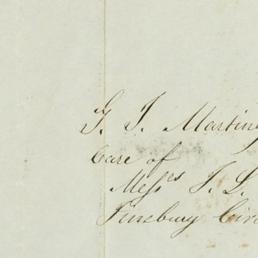 T. T. Martin
Care of
Mess^rs J. L.
Finsbury Circ